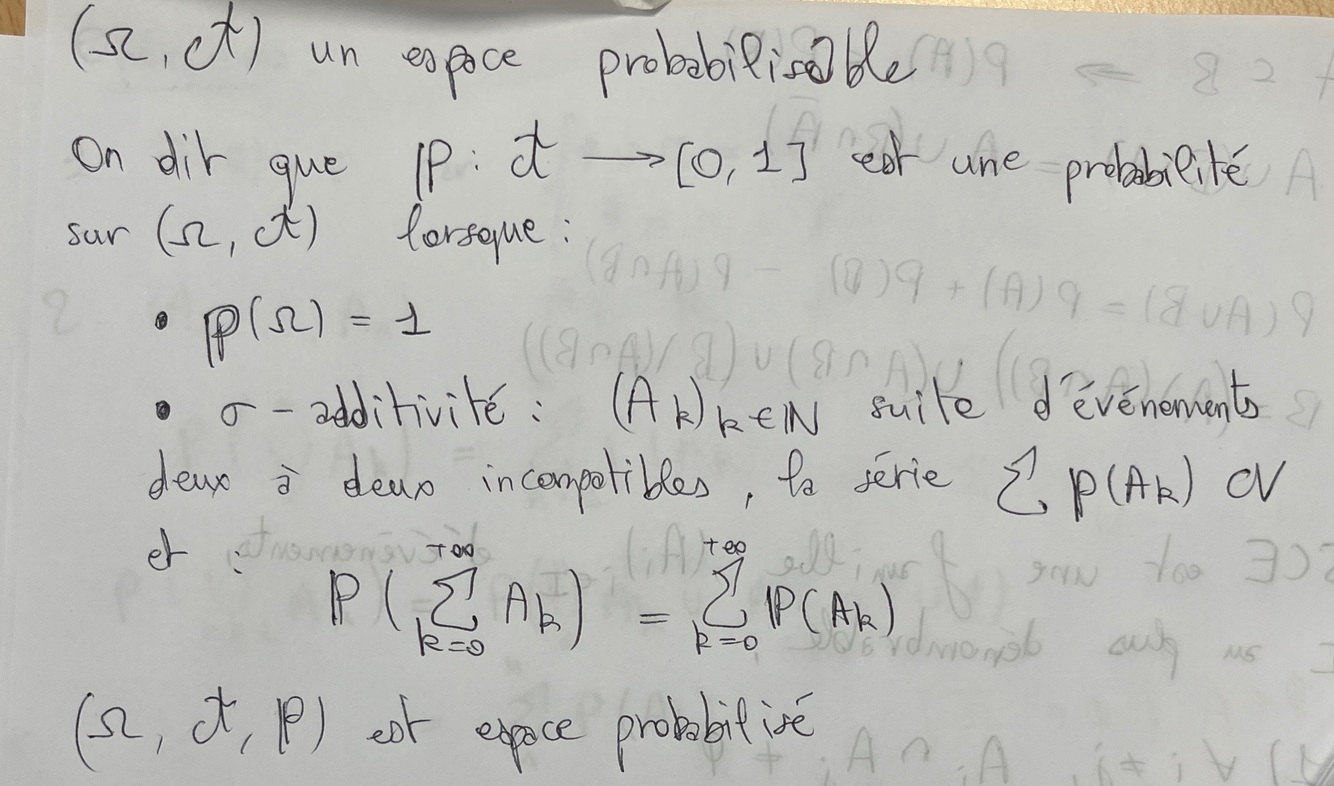 (Ω, 𝒜) un espace probabilisable
On dit que ℙ : 𝒜 → [0, 1] est une probabilité
sur (Ω, 𝒜) lorsque :
• ℙ(Ω) = 1
• σ-additivité : (A_k)_{k∈ℕ} suite d'événements
deux à deux incompatibles, la série Σ ℙ(A_k) CV
et :
ℙ(Σ_{k=0}^{+∞} A_k) = Σ_{k=0}^{+∞} ℙ(A_k)
(Ω, 𝒜, ℙ) est espace probabilisé